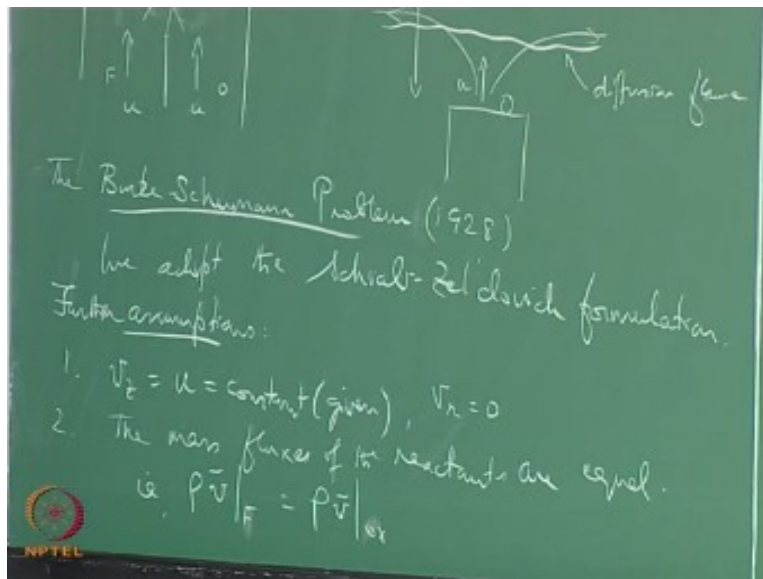 F
u
u
O
u
O
diffusion flame
The Burke-Schumann Problem (1928)
We adopt the Schvab-Zel'dovich formulation.
Further assumptions:
1. v_z = u = constant (given), v_r = 0
2. The mass fluxes of the reactants are equal.
ie, ρv̄|_F = ρv̄|_ox
NPTEL